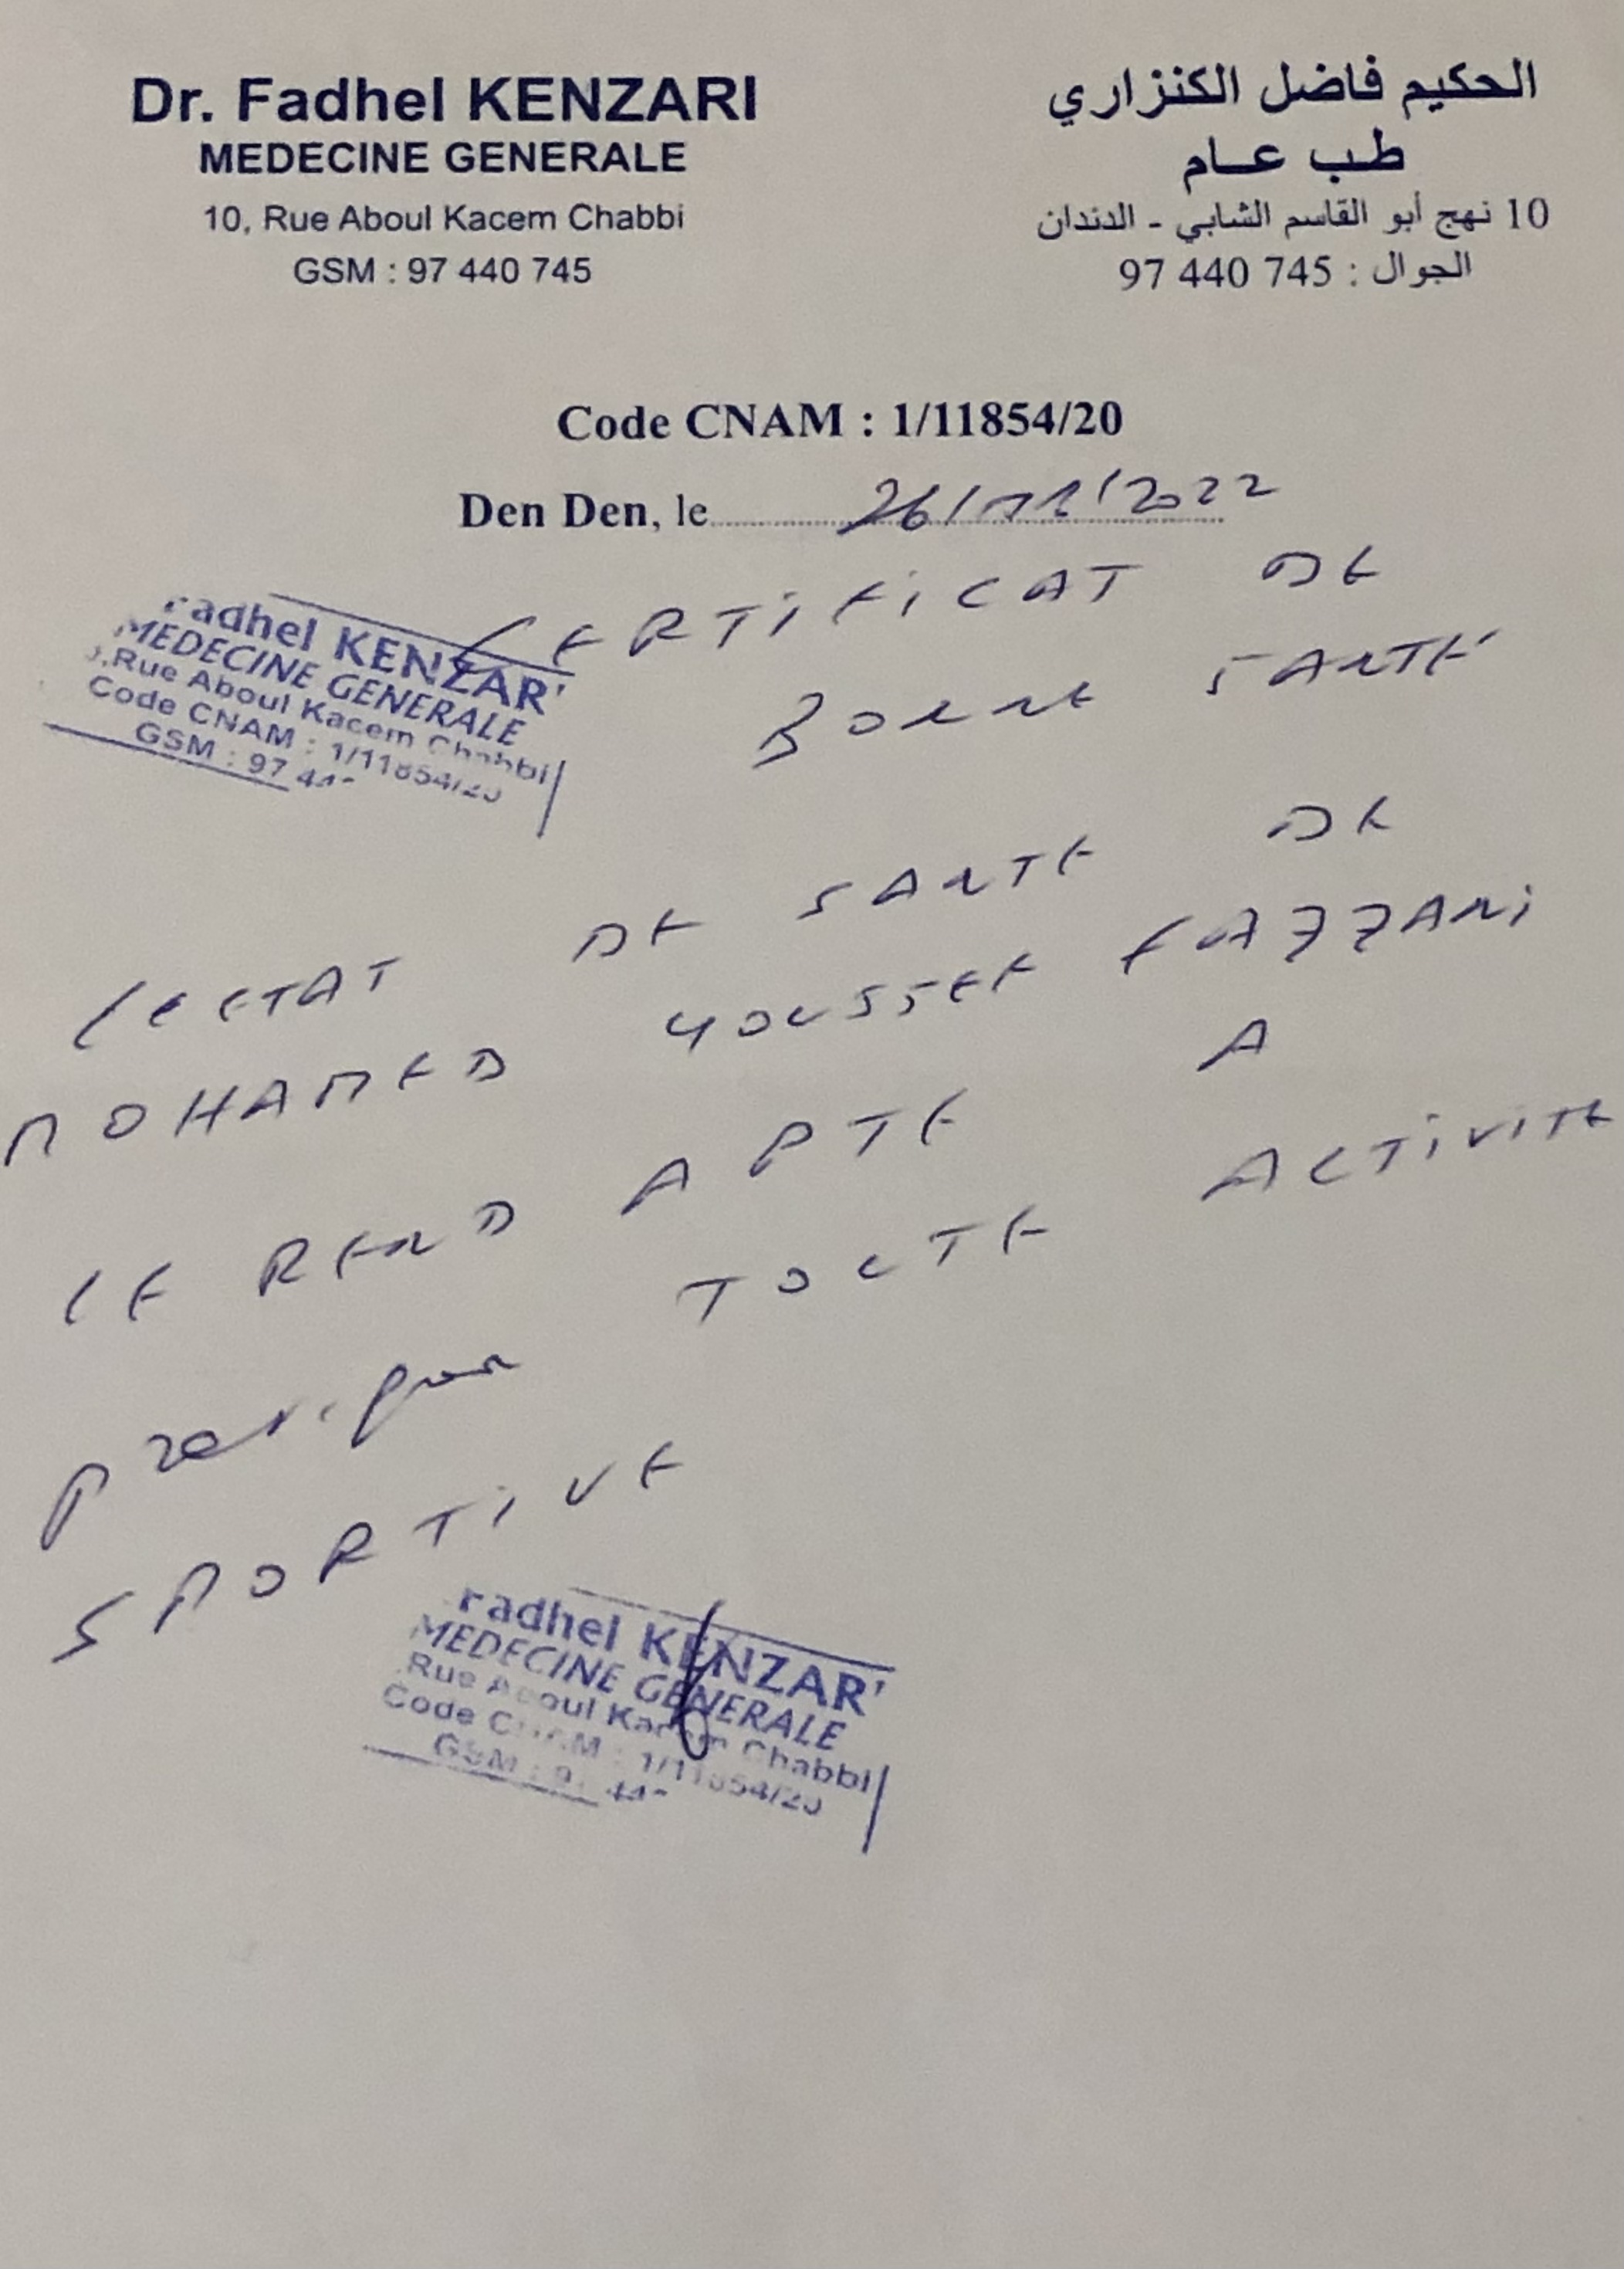 Dr. Fadhel KENZARI
MEDECINE GENERALE
10, Rue Aboul Kacem Chabbi
GSM : 97 440 745
الحكيم فاضل الكنزاري
طب عام
10 نهج أبو القاسم الشابي - الدندان
الجوال : 745 440 97
Code CNAM : 1/11854/20
Den Den, le 26/ /2022
CERTIFICAT DE
BONNE SANTE
radhel KENZAR
MEDECINE GENERALE
Rue Aboul Kacem Chabbi
Code CNAM : 1/11854/20
GSM : 97 44
L'ETAT DE SANTE DE
MOHAMED YOUSSEF EZZANI
LE REND APTE A
pratiquer TOUTE ACTIVITE
SPORTIVE
radhel KENZAR
MEDECINE GENERALE
Rue Aboul Kacem Chabbi
Code CNAM : 1/11854/20
GSM : 9 44